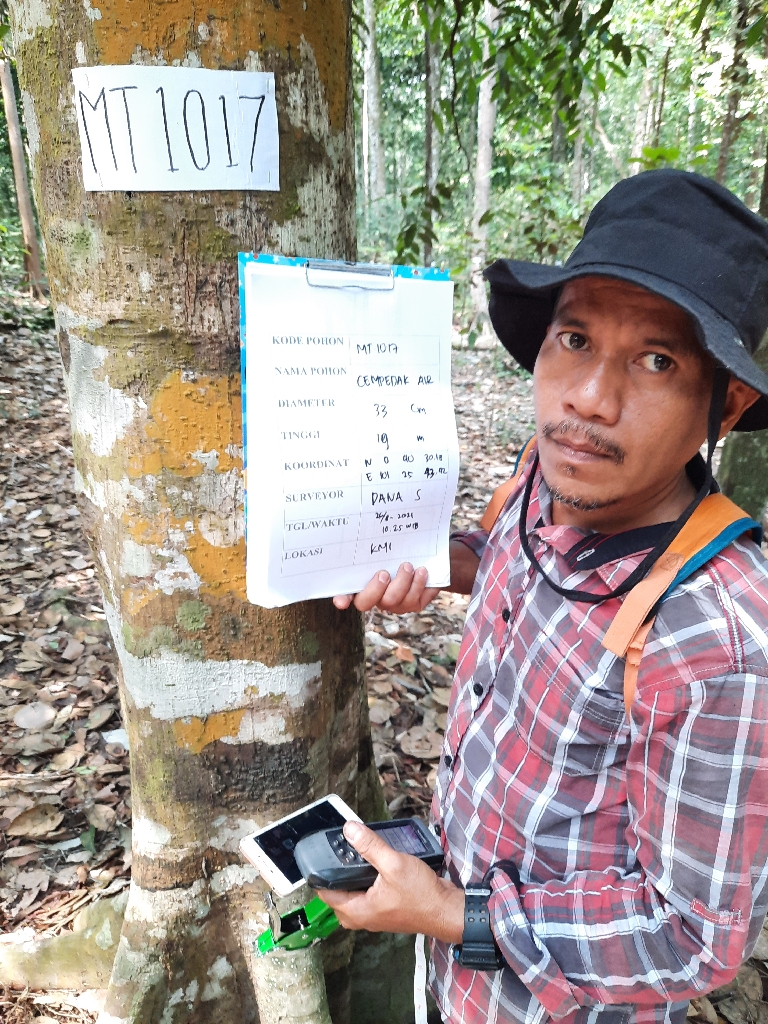 MT 1017
KODE POHON MT 1017
NAMA POHON CEMPEDAK AIR
DIAMETER 33 Cm
TINGGI 19 m
KOORDINAT N 0 40 30.18
E 101 25 43.02
SURVEYOR DANA S
TGL/WAKTU 26/8-2021
10.25 WIB
LOKASI KMI